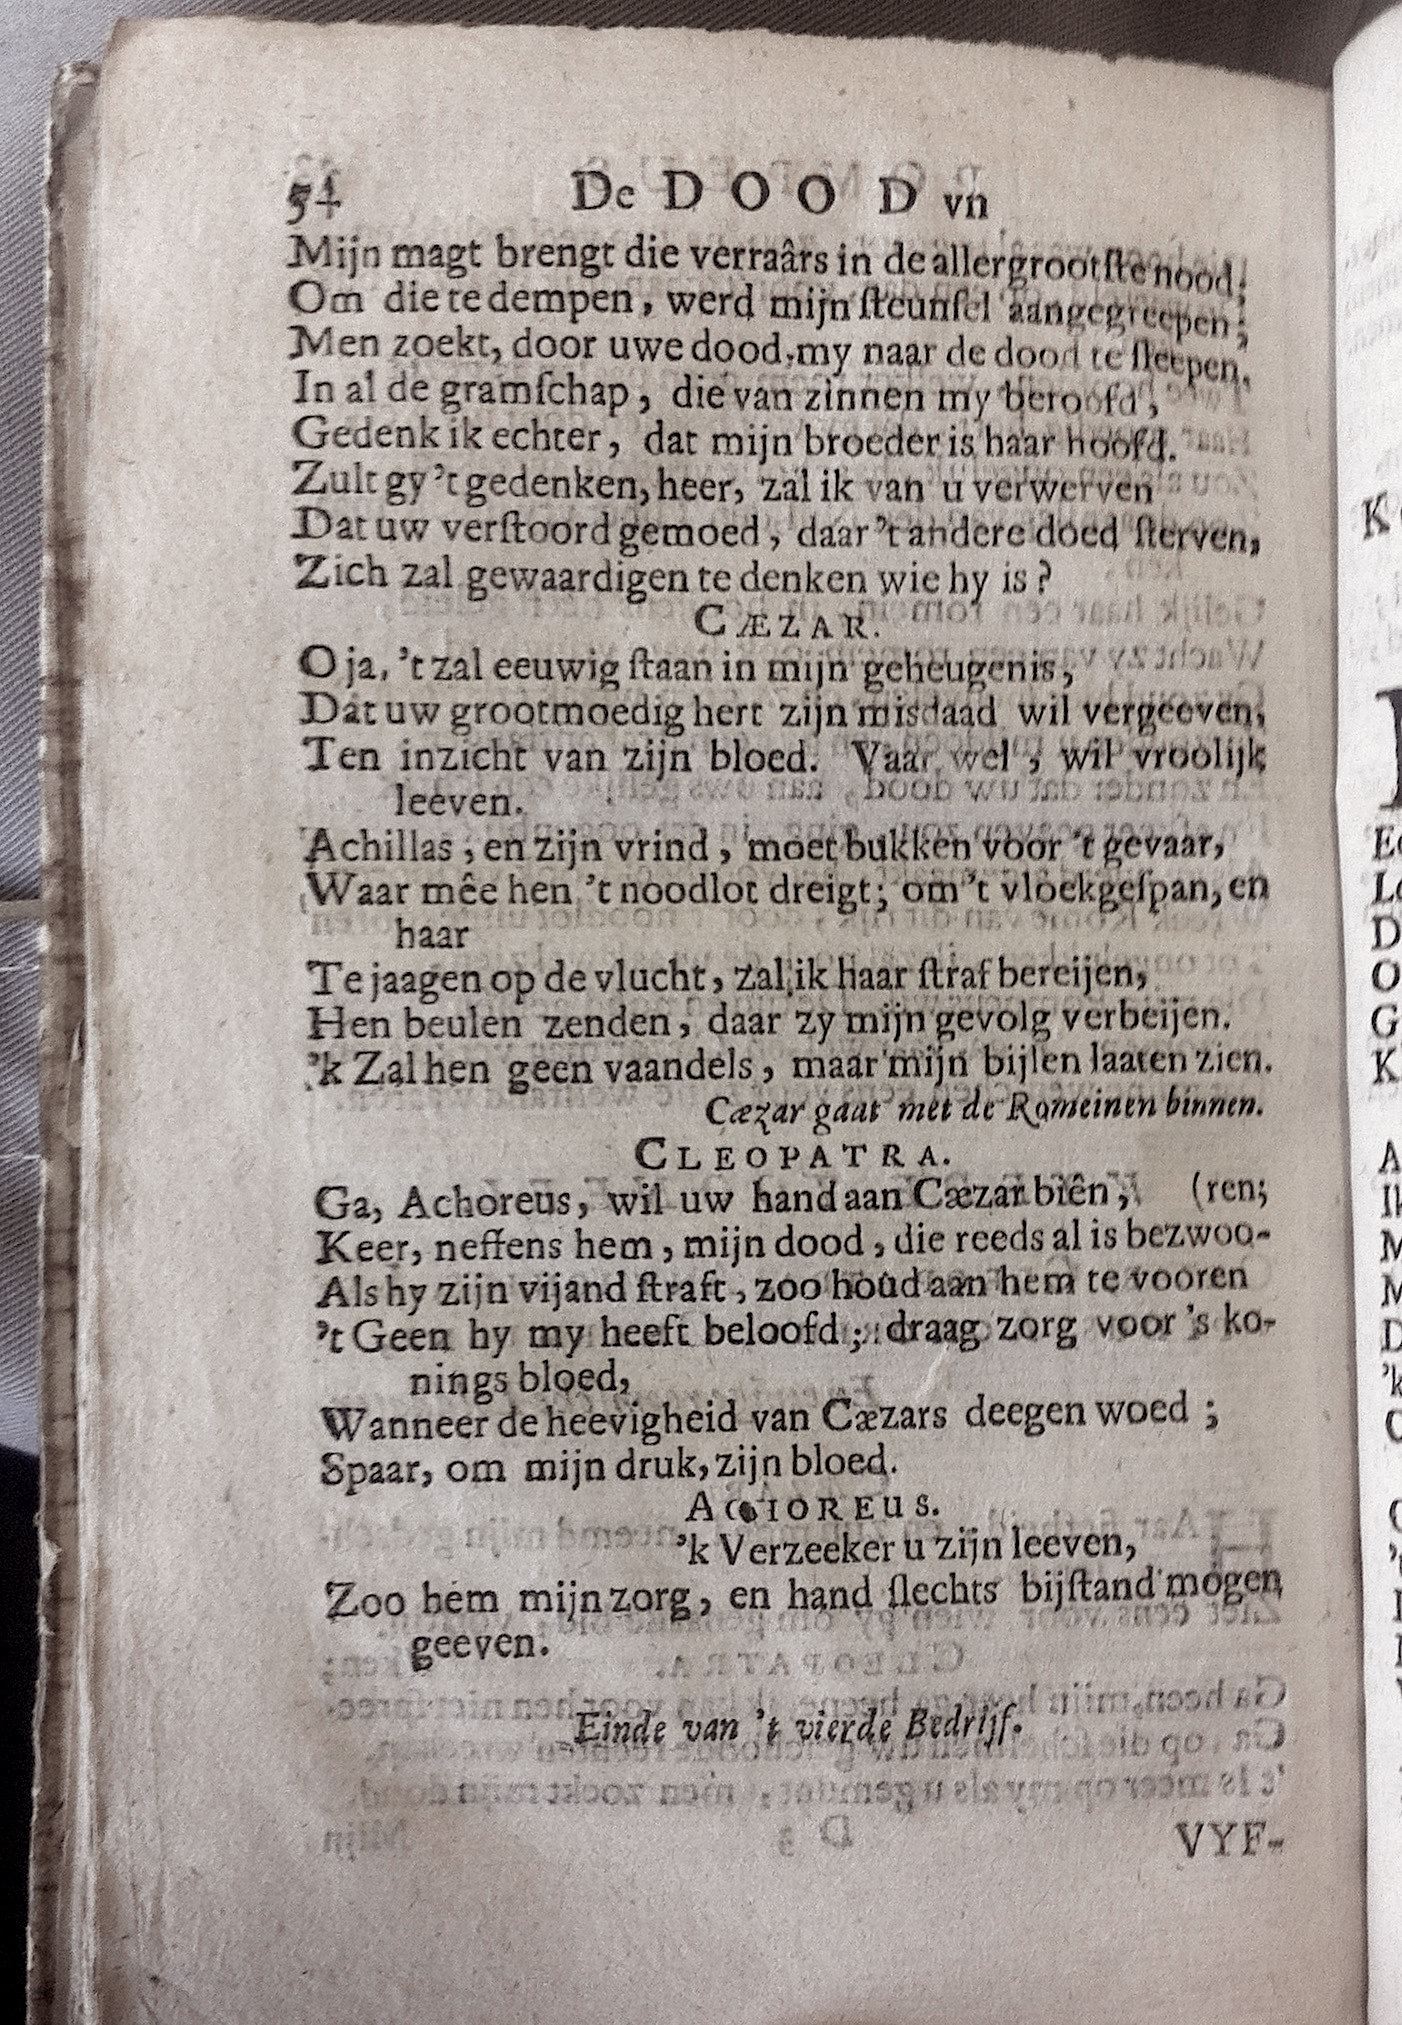 54 De DOOD vn
Mijn magt brengt die verraârs in de allergrootſte nood;
Om die te dempen, werd mijn ſteunſel aangegreepen;
Men zoekt, door uwe dood, my naar de dood te ſleepen.
In al de gramſchap, die van zinnen my berooſd,
Gedenk ik echter, dat mijn broeder is haar hoofd.
Zult gy 't gedenken, heer, zal ik van u verwerven
Dat uw verſtoord gemoed, daar 't andere doed ſterven,
Zich zal gewaardigen te denken wie hy is?
CÆZAR.
O ja, 't zal eeuwig ſtaan in mijn geheugenis,
Dat uw grootmoedig hert zijn misdaad wil vergeeven,
Ten inzicht van zijn bloed. Vaar wel, wil vroolijk
leeven.
Achillas, en zijn vrind, moet bukken voor 't gevaar,
Waar mêe hen 't noodlot dreigt; om 't vloekgeſpan, en
haar
Te jaagen op de vlucht, zal ik haar ſtraf bereijen,
Hen beulen zenden, daar zy mijn gevolg verbeijen.
'k Zal hen geen vaandels, maar mijn bijlen laaten zien.
Cæzar gaat met de Romeinen binnen.
CLEOPATRA.
Ga, Achoreus, wil uw hand aan Cæzar biên, (ren;
Keer, neffens hem, mijn dood, die reeds al is bezwoo-
Als hy zijn vijand ſtraft, zoo houd aan hem te vooren
't Geen hy my heeft beloofd; draag zorg voor 's ko-
nings bloed,
Wanneer de heevigheid van Cæzars deegen woed;
Spaar, om mijn druk, zijn bloed.
ACHOREUS.
'k Verzeeker u zijn leeven,
Zoo hem mijn zorg, en hand ſlechts bijſtand mogen
geeven.
Einde van 't vierde Bedrijf.
VYF-